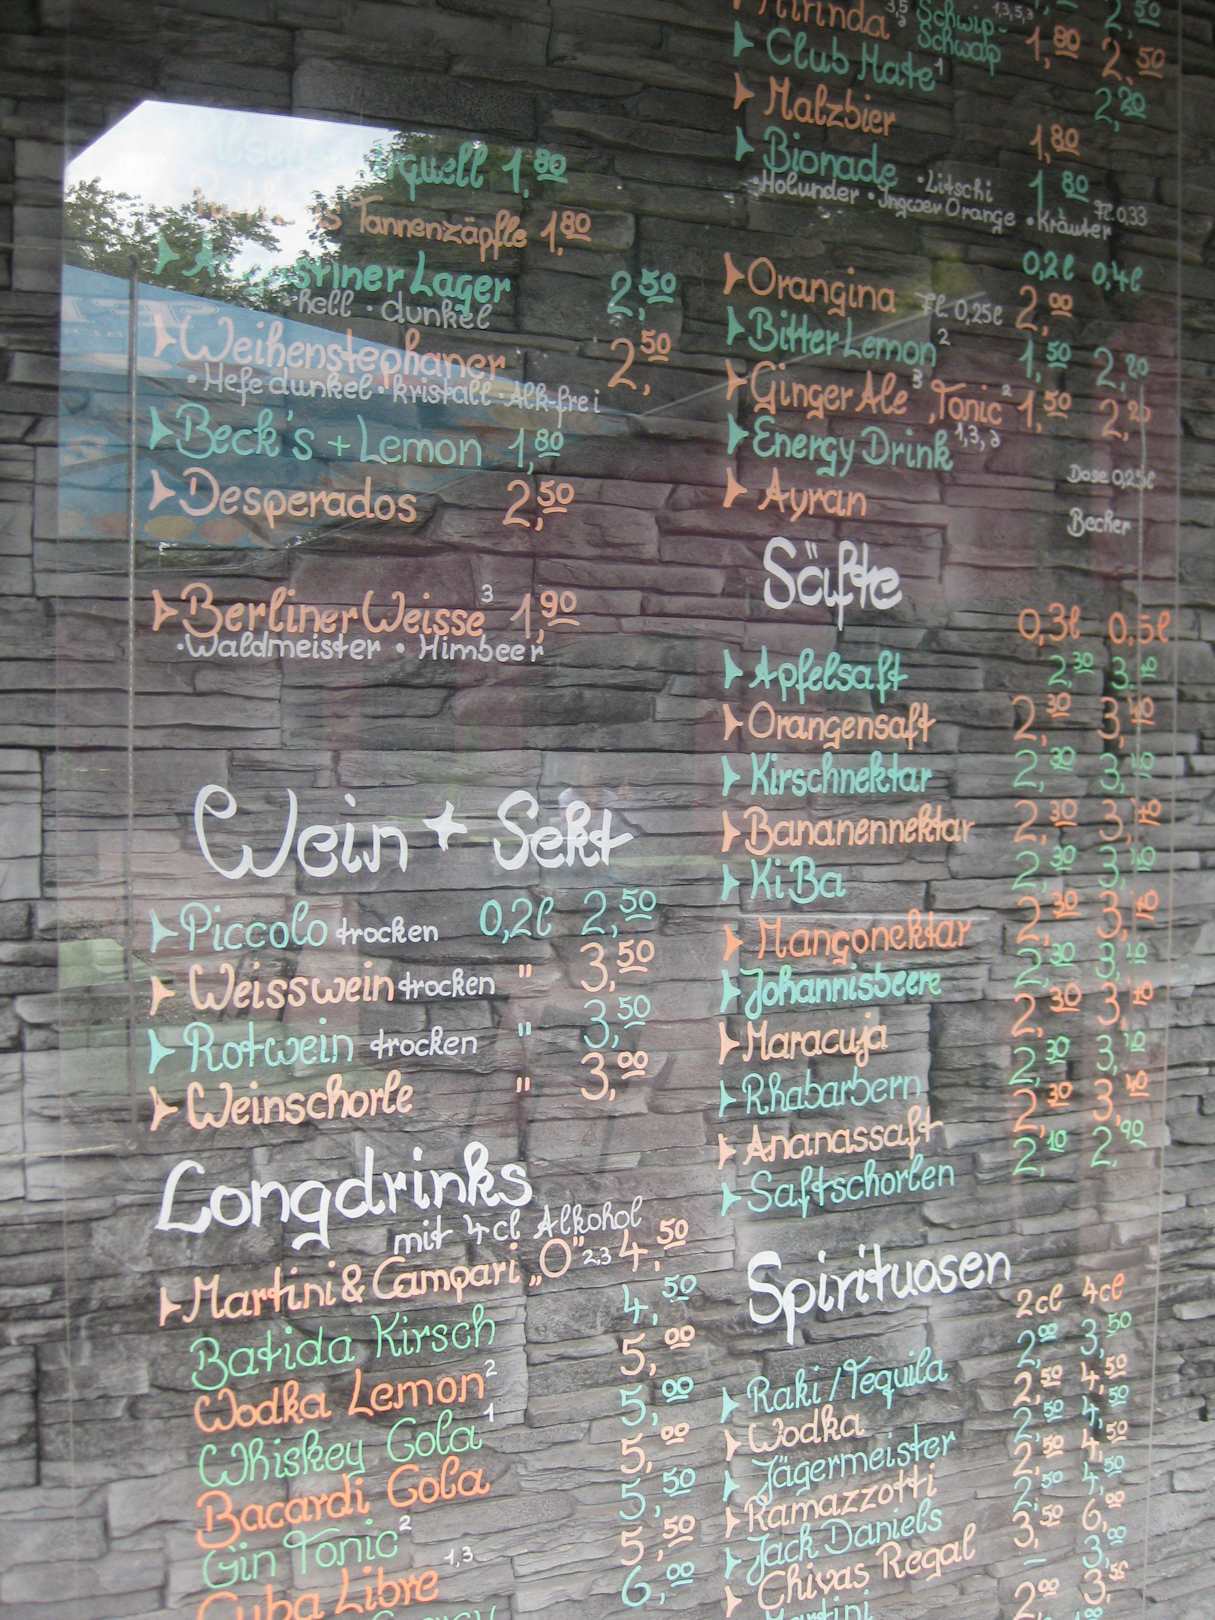 rquell 1,80
s Tannenzäpfle 1,80
stiner Lager 2,50
hell · dunkel
Weihenstephaner 2,50
· Hefe dunkel · kristall · Alk-frei
Beck's + Lemon 1,80
Desperados 2,50
Berliner Weisse 3 1,90
· Waldmeister · Himbeer
Wein + Sekt
Piccolo trocken 0,2l 2,50
Weisswein trocken " 3,50
Rotwein trocken " 3,50
Weinschorle " 3,00
Longdrinks
mit 4cl Alkohol
Martini & Campari „O" 2,3 4,50
Batida Kirsch 4,50
Wodka Lemon 2 5,00
Whiskey Cola 1 5,00
Bacardi Cola 5,00
Gin Tonic 2 5,50
Cuba Libre 1,3 5,50
6,00
Mirinda Schwip-
Schwap 1,80 2,50
Club Mate 1 2,20
Malzbier 1,80
Bionade 1,80
· Litschi
· Holunder · Ingwer Orange · Kräuter Fl. 0,33
0,2l 0,4l
Orangina Fl. 0,25l 2,00
Bitter Lemon 2 1,50 2,20
Ginger Ale 3, Tonic 2 1,50 2,20
Energy Drink Dose 0,25l
Ayran Becher
Säfte
0,3l 0,5l
Apfelsaft 2,30 3,40
Orangensaft 2,30 3,40
Kirschnektar 2,30 3,40
Bananennektar 2,30 3,40
KiBa 2,30 3,40
Mangonektar 2,30 3,40
Johannisbeere 2,30 3,40
Maracuja 2,30 3,40
Rhabarbern 2,30 3,40
Ananassaft 2,30 3,40
Saftschorlen 2,10 2,90
Spirituosen
2cl 4cl
Raki / Tequila 2,00 3,50
Wodka 2,50 4,50
Jägermeister 2,50 4,50
Ramazzotti 2,50 4,50
Jack Daniels 2,50 4,50
Chivas Regal 3,50 6,00
Martini – 3,00
2,00 3,50